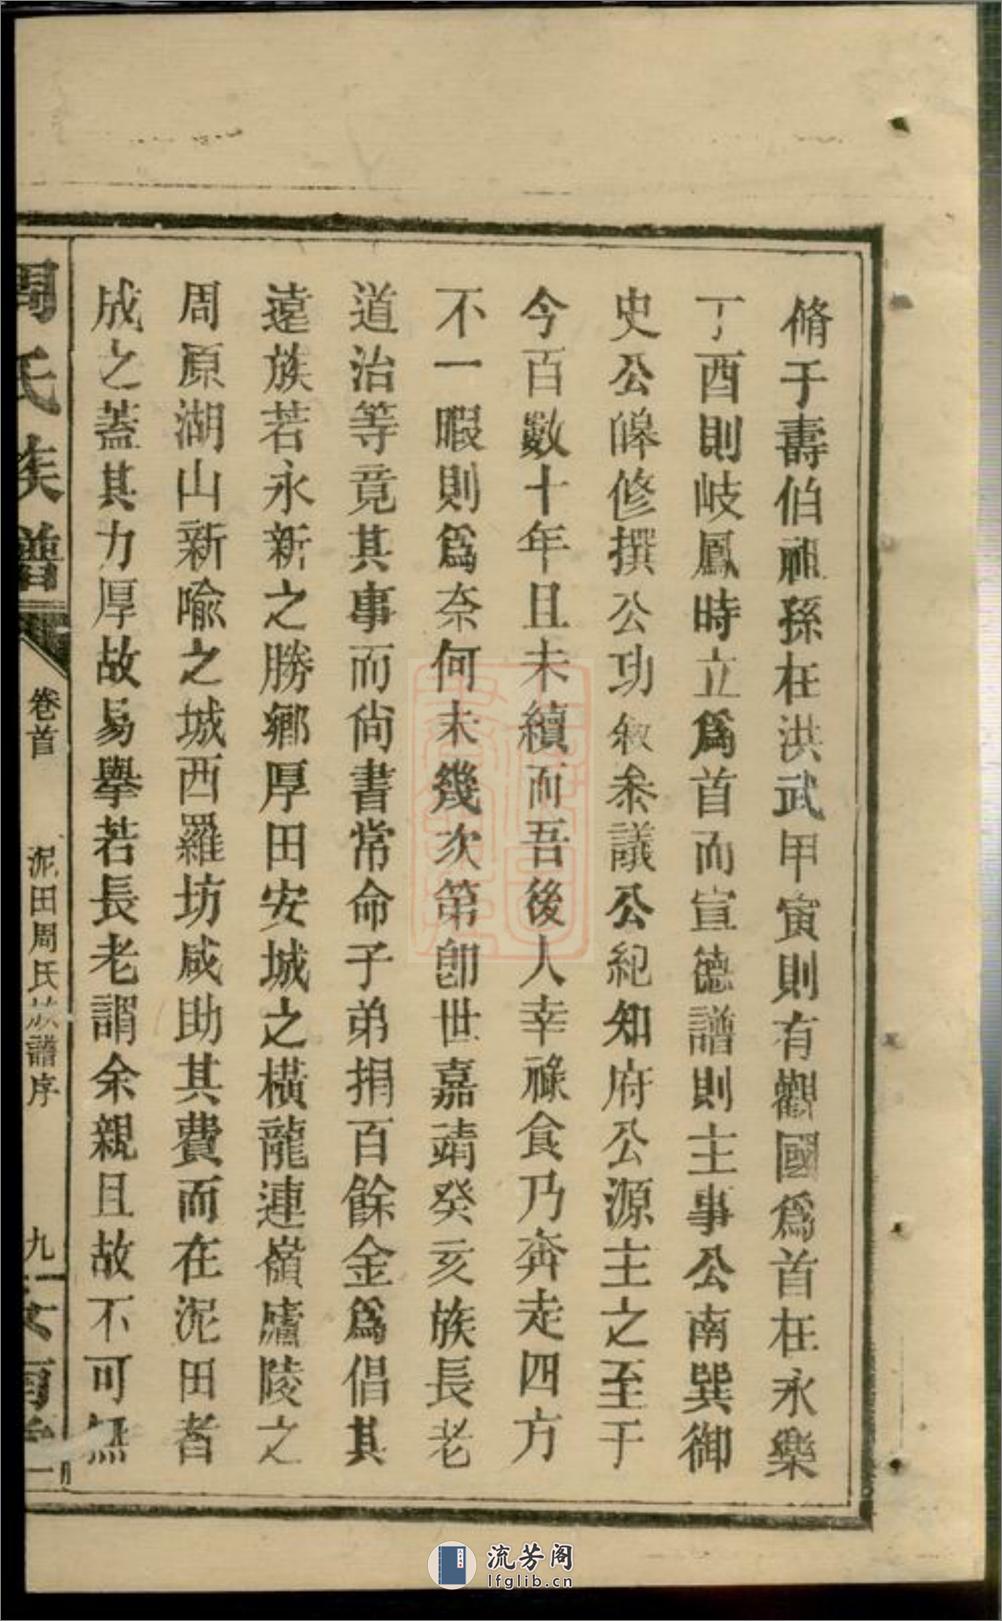 脩于壽伯祖孫在洪武甲寅則有觀國爲首在永樂
丁酉則岐鳳時立爲首而宣德譜則主事公南巽御
史公皞修撰公功敘叅議公紀知府公源主之至于
今百數十年且未續而吾後人幸祿食乃奔走四方
不一暇則爲奈何未幾次第卽世嘉靖癸亥族長老
道治等竟其事而尙書常命子弟捐百餘金爲倡其
遠族若永新之勝鄉厚田安城之橫龍連嶺廬陵之
周原湖山新喻之城西羅坊咸助其費而在泥田者
成之蓋其力厚故易舉若長老謂余親且故不可無
周氏族譜
卷首
泥田周氏族譜序
九
流芳阁
lfglib.cn